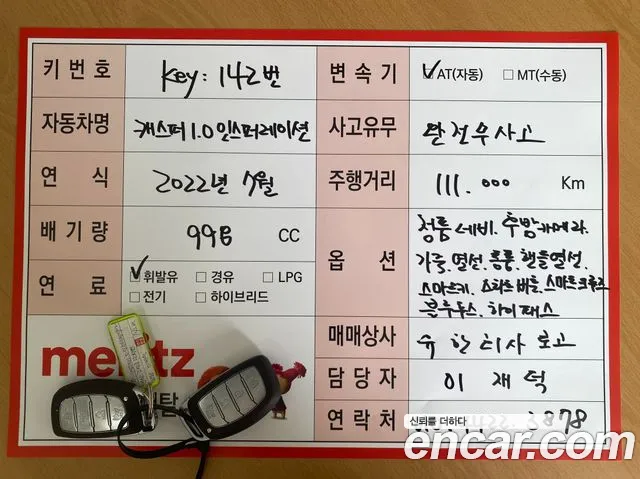 키번호 Key: 142번 변속기 ✓AT(자동) □ MT(수동)
자동차명 캐스퍼 1.0 인스퍼레이션 사고유무 완전무사고
연식 2022년 7월 주행거리 111.000 Km
배기량 998 CC
옵션 정품 네비. 후방카메라.
가죽.열선.통풍.핸들열선.
스마트키.스마트크루즈
블루투스.하이패스
연료 ✓휘발유 □ 경유 □ LPG
□ 전기 □ 하이브리드
매매상사
담당자 이재덕
연락처 3878
meritz
신뢰를 더하다
encar.com